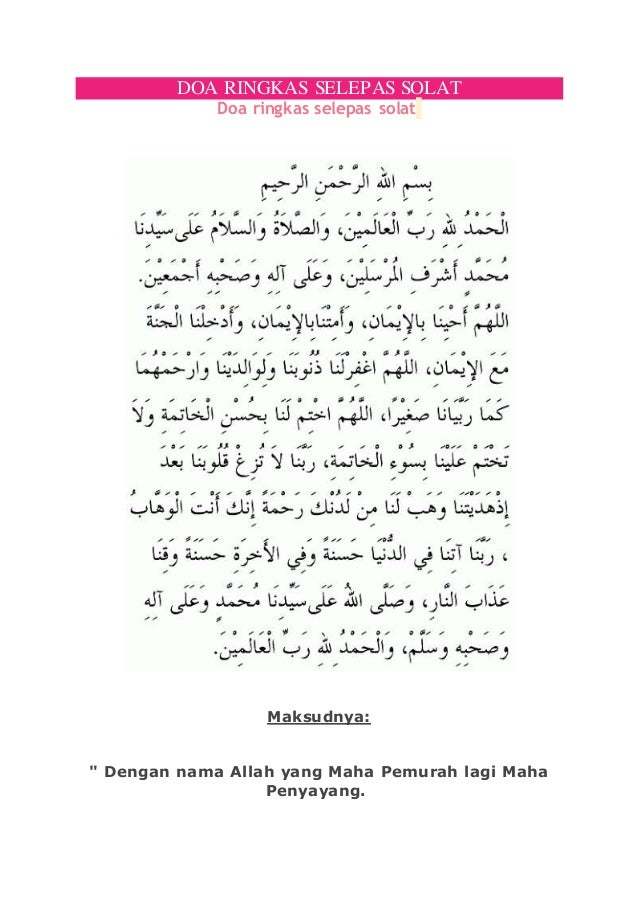 DOA RINGKAS SELEPAS SOLAT
Doa ringkas selepas solat
بِسْمِ اللهِ الرَّحْمَنِ الرَّحِيمِ
الْحَمْدُ لِلَّهِ رَبِّ الْعَالَمِيْنَ، وَالصَّلاَةُ وَالسَّلاَمُ عَلَى سَيِّدِنَا
مُحَمَّدٍ أَشْرَفِ الْمُرْسَلِيْنَ، وَعَلَى آلِهِ وَصَحْبِهِ أَجْمَعِيْنَ.
اللَّهُمَّ أَحْيِنَا بِالإِيْمَانِ، وَأَمِتْنَابِالإِيْمَانِ، وَأَدْخِلْنَا الْجَنَّةَ
مَعَ الإِيْمَانِ، اللَّهُمَّ اغْفِرْلَنَا ذُنُوبَنَا وَلِوَالِدَيْنَا وَارْحَمْهُمَا
كَمَا رَبَّيَانَا صَغِيْرًا، اللَّهُمَّ اخْتِمْ لَنَا بِحُسْنِ الْخَاتِمَةِ وَلاَ
تَخْتِمْ عَلَيْنَا بِسُوْءِ الْخَاتِمَةِ، رَبَّنَا لاَ تُزِغْ قُلُوبَنَا بَعْدَ
إِذْهَدَيْتَنَا وَهَبْ لَنَا مِنْ لَدُنْكَ رَحْمَةً إِنَّكَ أَنْتَ الْوَهَّابُ
، رَبَّنَا آتِنَا فِي الدُّنْيَا حَسَنَةً وَفِي الأَخِرَةِ حَسَنَةً وَقِنَا
عَذَابَ النَّارِ، وَصَلَّى اللهُ عَلَى سَيِّدِنَا مُحَمَّدٍ وَعَلَى آلِهِ
وَصَحْبِهِ وَسَلَّمْ، وَالْحَمْدُ لِلَّهِ رَبِّ الْعَالَمِيْنَ.
Maksudnya:
" Dengan nama Allah yang Maha Pemurah lagi Maha
Penyayang.